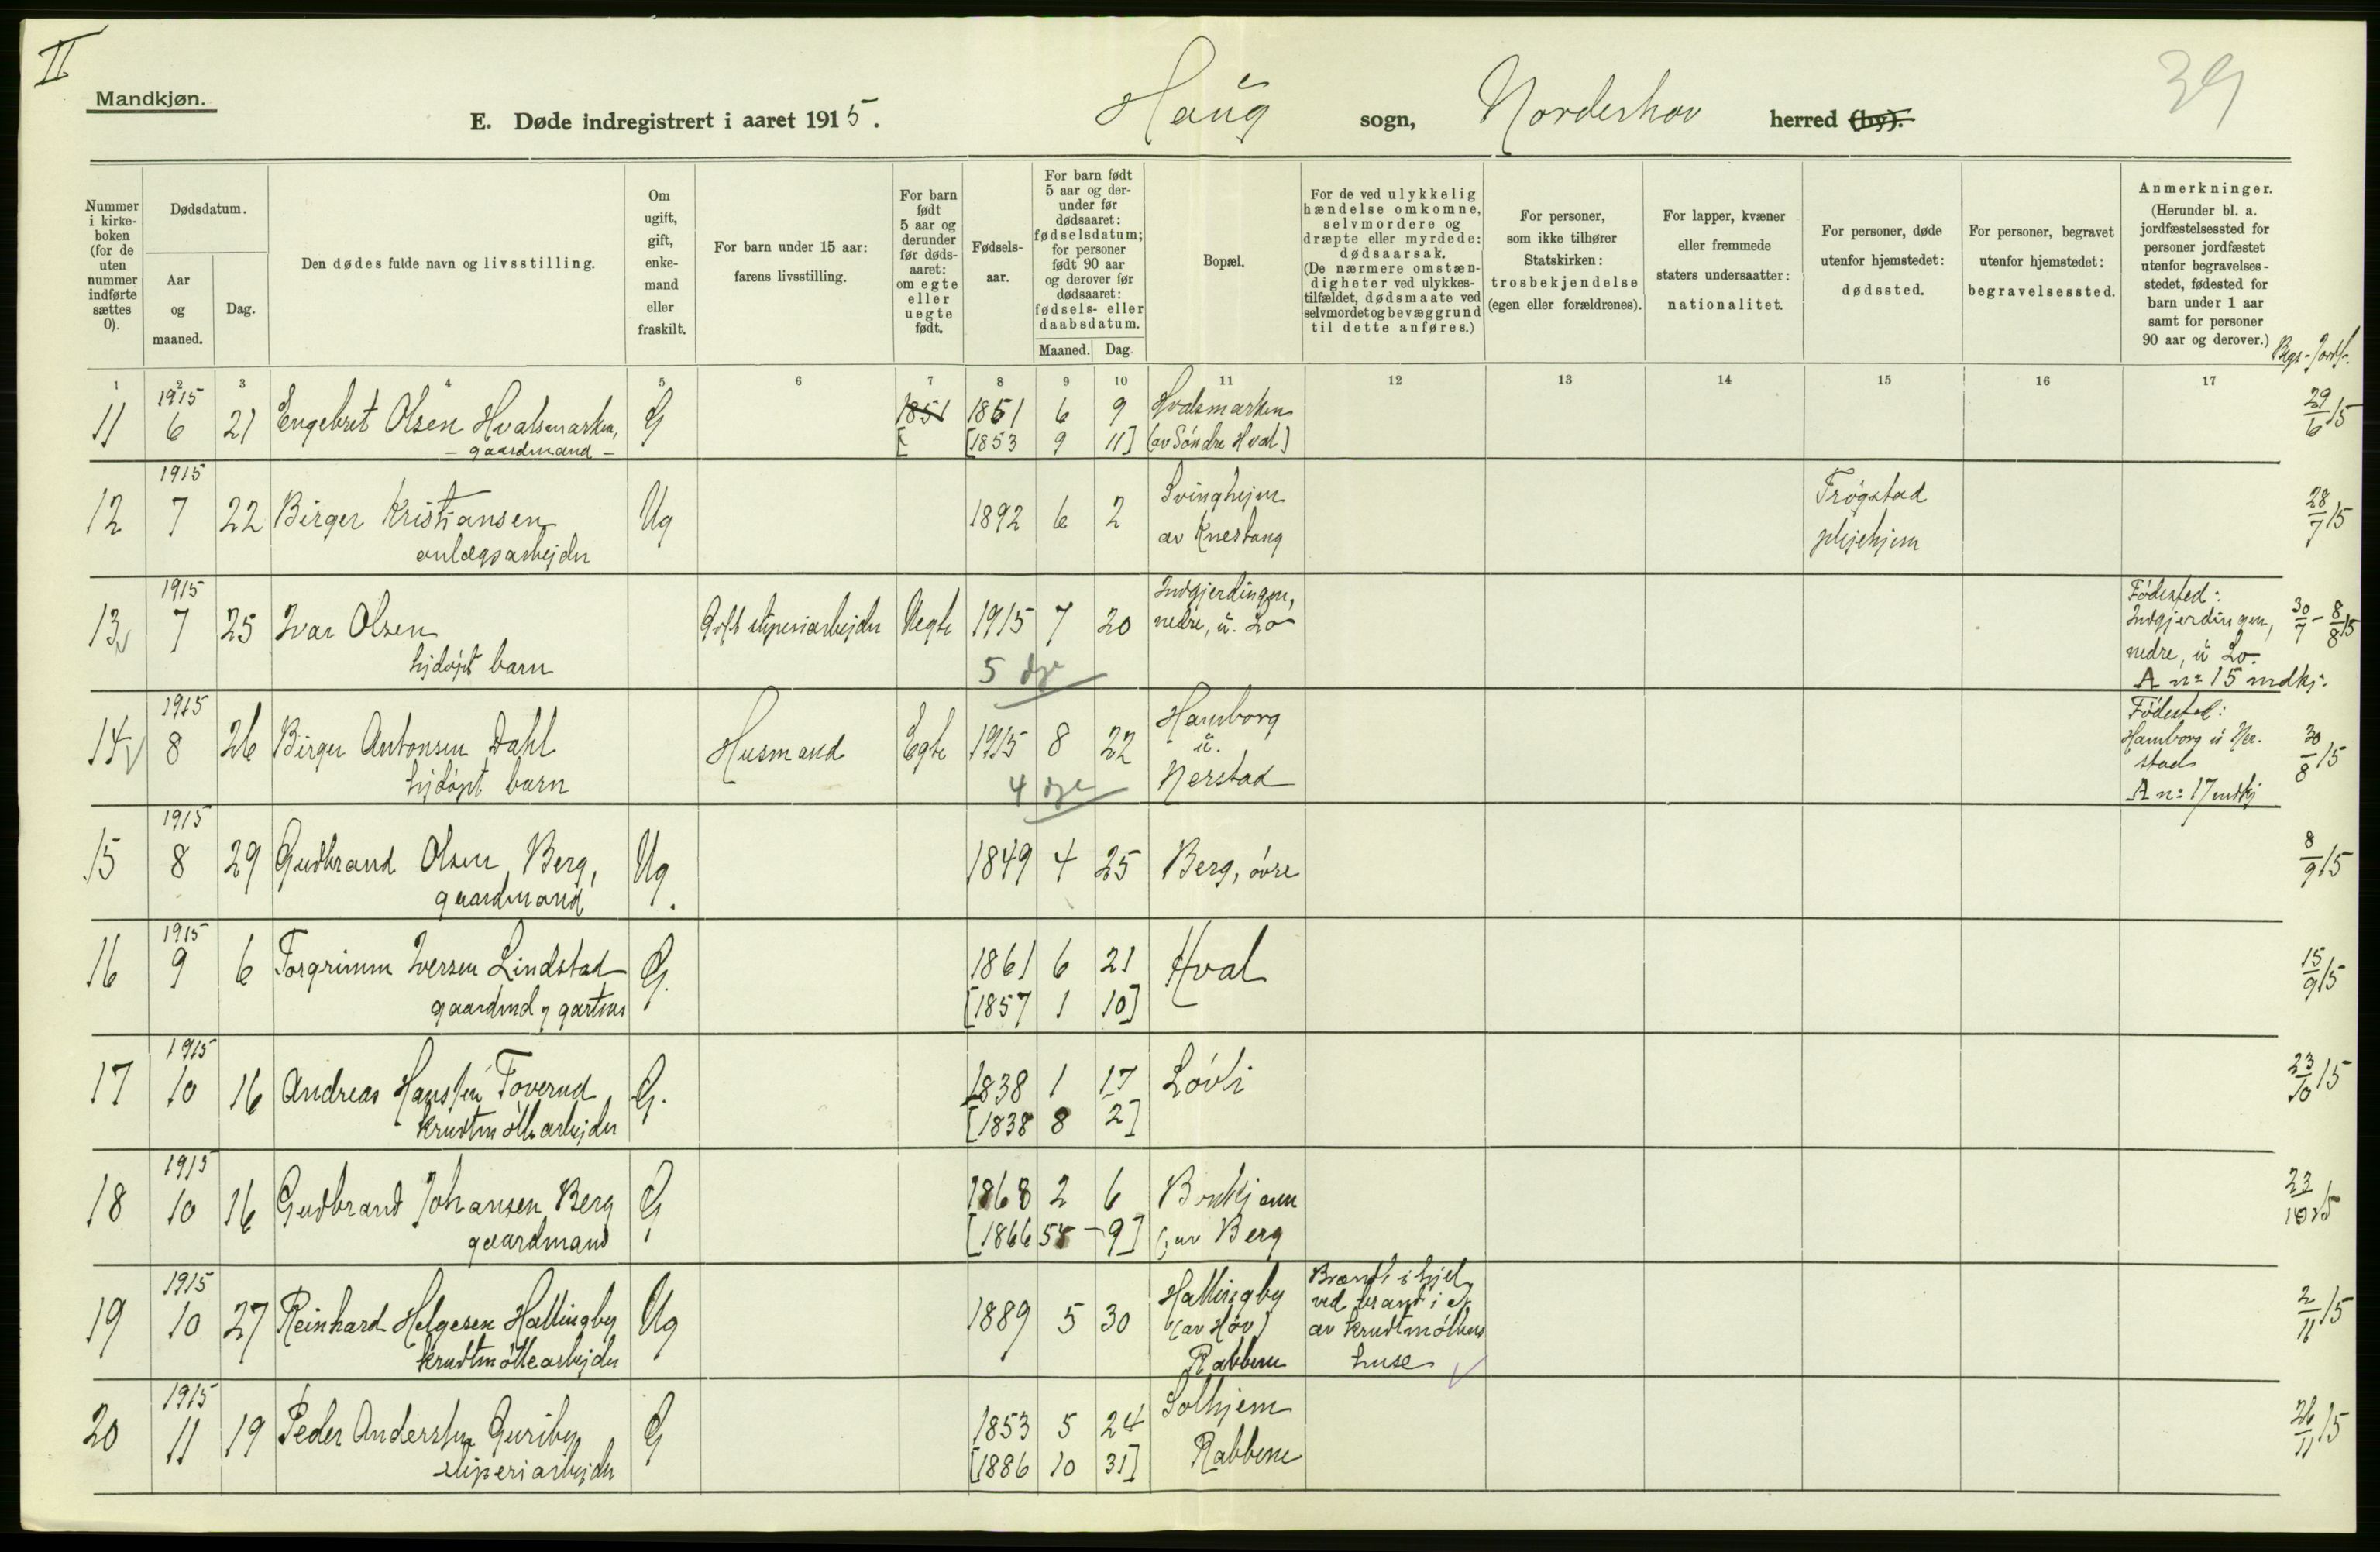 II
39
Mandkjøn.
E. Døde indregistrert i aaret 1915. Haug sogn, Norderhov herred (by).
Nummer i kirkeboken (for de uten nummer indførte sættes 0).
Dødsdatum.
Aar og maaned.
Dag.
Den dødes fulde navn og livsstilling.
Om ugift, gift, enkemand eller fraskilt.
For barn under 15 aar: farens livsstilling.
For barn født 5 aar og derunder før dødsaaret: om egte eller uegte født.
Fødselsaar.
For barn født 5 aar og derunder før dødsaaret: fødselsdatum; for personer født 90 aar og derover før dødsaaret: fødsels- eller daabsdatum.
Maaned. Dag.
Bopæl.
For de ved ulykkelig hændelse omkomne, selvmordere og dræpte eller myrdede: dødsaarsak. (De nærmere omstændigheter ved ulykkestilfældet, dødsmaate ved selvmordet og bevæggrund til dette anføres.)
For personer, som ikke tilhører Statskirken: trosbekjendelse (egen eller forældrenes).
For lapper, kvæner eller fremmede staters undersaatter: nationalitet.
For personer, døde utenfor hjemstedet: dødssted.
For personer, begravet utenfor hjemstedet: begravelsessted.
Anmerkninger. (Herunder bl. a. jordfæstelsessted for personer jordfæstet utenfor begravelsesstedet, fødested for barn under 1 aar samt for personer 90 aar og derover.)
Begr-Jordf.
1 2 3 4 5 6 7 8 9 10 11 12 13 14 15 16 17
1915
11 6 21 Engebret Olsen Hvalsmarken, G 1851 1851 6 9 Hvalsmarken 29/6 15
- gaardmand - [ [1853 9 11] (av Søndre Hval)
1915
12 7 22 Birger Kristiansen Ug 1892 6 2 Svinghejm Trøgstad 28/7 15
anlægsarbejder av Knestang plejehjem
1915
13 7 25 Ivar Olsen Gift sliperiarbejder Uegte 1915 7 20 Indgjerdingen, nedre, u. Lo Fødested: 30/7 - 8/8 15
hjdøpt barn 5 dge Indgjerdingen, nedre, u Lo.
A n: 15 mdkj.
1915
14 8 26 Birger Antonsen Dahl Husmand Egte 1915 8 22 Hamborg u. Nerstad Fødested: 30/8 15
hjdøpt barn 4 dge Hamborg u Nerstad
A n: 17 mdkj
1915
15 8 29 Gudbrand Olsen Berg, Ug. 1849 4 25 Berg, øvre 8/9 15
gaardmand
1915
16 9 6 Torgrimm Iversen Lindstad G. 1861 6 21 Hval 15/9 15
gaardmd og gartner [1857 1 10]
1915
17 10 16 Andreas Hanssen Toverud G. 1838 1 17 Løvli 23/10 15
krudtmøllearbejder [1838 8 2]
1915
18 10 16 Gudbrand Johansen Berg G 1868 2 6 23/10 15
gaardmand [1866 - 9] (av Berg
1915
19 10 27 Reinhard Helgesen Hallingby Ug 1889 5 30 Hallingby (av Hov) Rabben Brændt ihjel ved brand i et av krudtmøllens huse 2/11 15
krudtmøllearbejder
1915
20 11 19 Peder Anderssen Guriby G 1853 5 24 Solhjem 26/11 15
sliperiarbejder [1886 10 31] Rabbene